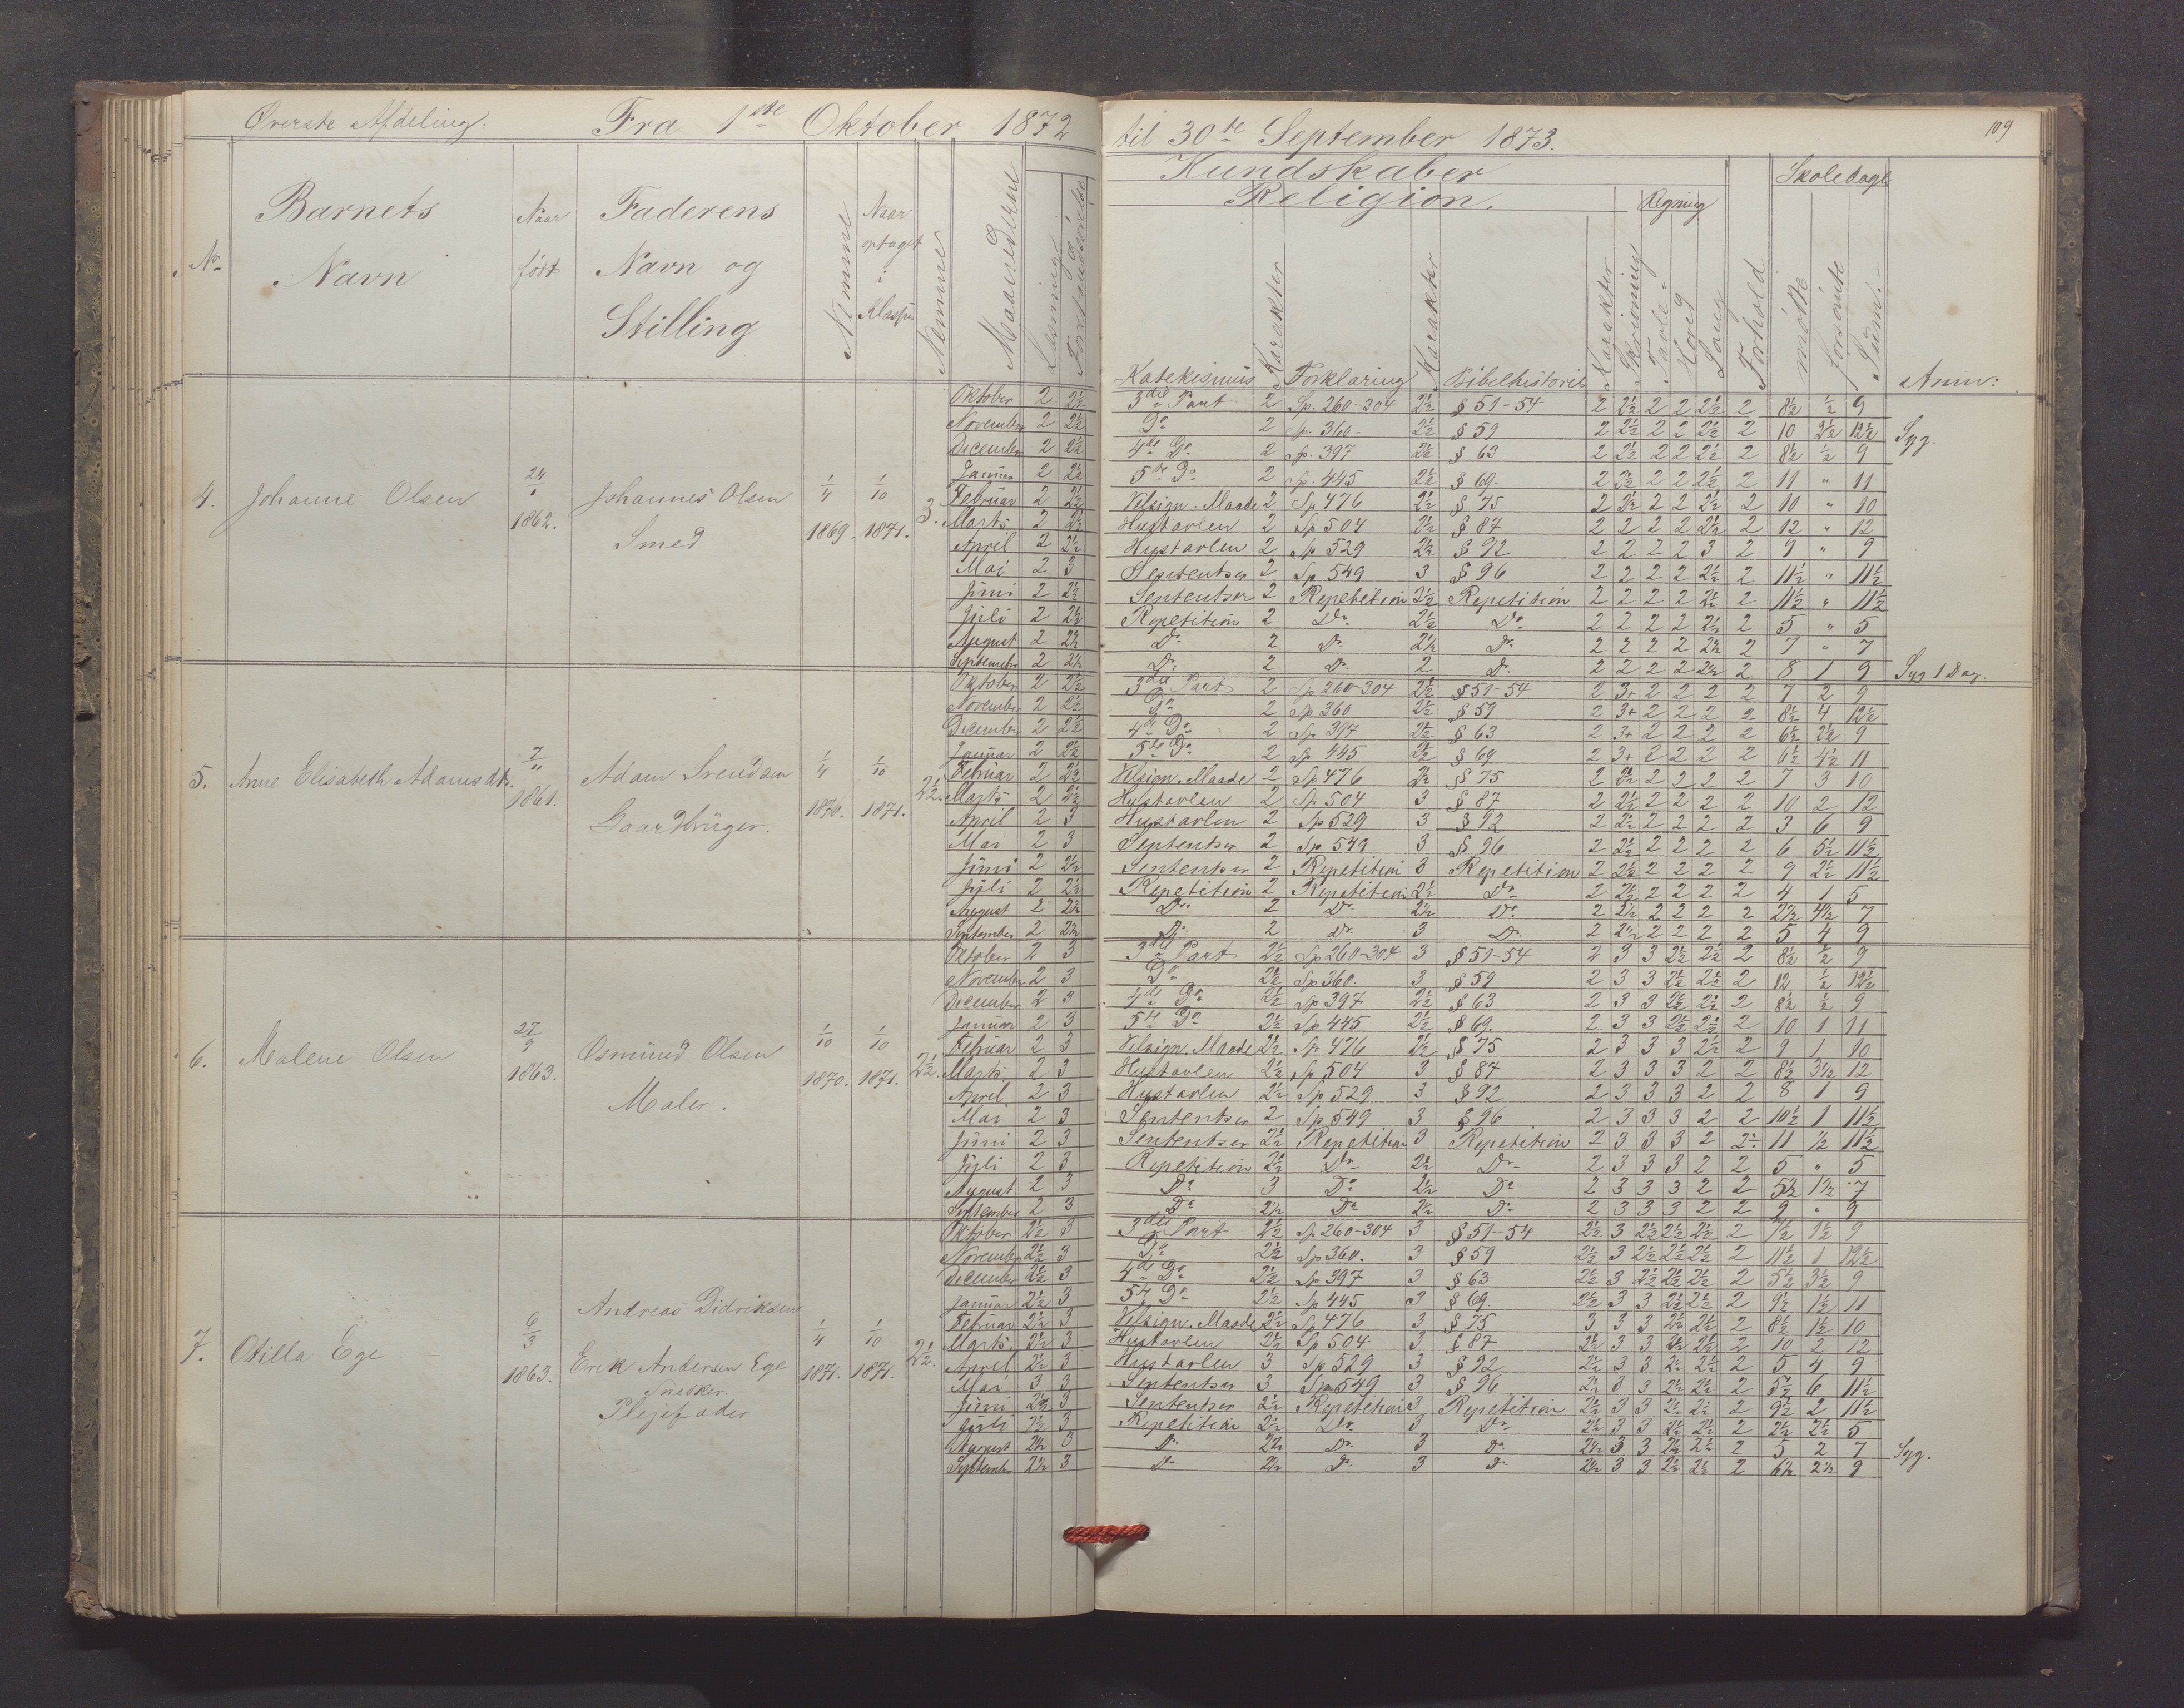 Øverste Afdeling. Fra 1ste Oktober 1872 til 30te September 1873. 109
Kundskaber Skoledage
Religion. Regning
No Barnets Navn Naar født Faderens Navn og Stilling Nemme Naar optaget i Klassen Nemme Maanederne Læsning Forstandsøvelse Katekismus Karakter Forklaring Karakter Bibelhistorie Karakter Skrivning Tavle- Hoved Sang Forhold mødte forsømte Sum. Anm:
4. Johanne Olsen 1862. Johannes Olsen Smed 1/4 1869. 1/10 1871. 3.
Oktober 2 2½ 3die Part 2 Sp. 260-304 2½ § 51-54 2 2½ 2 2 2½ 2 8½ ½ 9
November 2 2½ Do 2 Sp. 360- 2½ § 59 2 2½ 2 2 2½ 2 10 2½ 12½ Syg.
December 2 2½ 4de Do 2 Sp. 397 2½ § 63 2 2½ 2 2 2½ 2 8½ ½ 9
Januar 2 2½ 5te Do 2 Sp. 445 2½ § 69. 2 2½ 2 2 2½ 2 11 " 11
Februar 2 2½ Velsign. Maade 2 Sp 476 2½ § 75 2 2½ 2 2 2½ 2 10 " 10
Marts 2 2½ Hustavlen 2 Sp 504 2½ § 87 2 2 2 2 2½ 2 12 " 12
April 2 2½ Hustavlen 2 Sp 529 2½ § 92 2 2 2 2 3 2 9 " 9
Mai 2 3 Sententser 2 Sp 549 3 § 96 2 2 2 2 2½ 2 11½ " 11½
Juni 2 2½ Sententser 2 Repetition 2½ Repetition 2 2 2 2 2½ 2 11½ " 11½
Juli 2 2½ Repetition 2 Do 2½ Do 2 2 2 2 2½ 2 5 " 5
August 2 2½ Do 2 Do 2½ Do 2 2 2 2 2½ 2 7 " 7
September 2 2½ Do 2 Do 2 Do 2 2 2 2 2½ 2 8 1 9 Syg 1 Dag.
5. Anne Elisabeth Adamsdtr. 7/11 1861. Adam Svendsen Gaardbruger. 1/4 1870. 1/10 1871. 2½.
Oktober 2 2½ 3die Part 2 Sp 260-304 2½ § 51-54 2 3+ 2 2 2 2 7 2 9
November 2 2½ Do 2 Sp 360 2½ § 59 2 3+ 2 2 2 2 8½ 4 12½
December 2 2½ 4de Do 2 Sp 397 2½ § 63 2 3+ 2 2 2 2 6½ 2½ 9
Januar 2 2½ 5te Do 2 Sp 445 2½ § 69 2 3+ 2 2 2 2 6½ 4½ 11
Februar 2 2½ Velsign. Maade 2 Sp 476 2½ § 75 2 2½ 2 2 2 2 7 3 10
Marts 2 2½ Hustavlen 2 Sp 504 3 § 87 2 2½ 2 2 2 2 10 2 12
April 2 3 Hustavlen 2 Sp 529 3 § 92 2 2½ 2 2 2 2 3 6 9
Mai 2 3 Sententser 2 Sp 549 3 § 96 2 2½ 2 2 2 2 6 5½ 11½
Juni 2 2½ Sententser 2 Repetition 3 Repetition 2 2½ 2 2 2 2 9 2½ 11½
Juli 2 2½ Repetition 2 Repetition 2½ Do 2 2½ 2 2 2 2 4 1 5
August 2 2½ Do 2 Do 2½ Do 2 2½ 2 2 2 2 2½ 4½ 7
September 2 2½ Do 2 Do 3 Do 2 2½ 2 2 2 2 5 4 9
6. Malene Olsen 27/9 1863. Osmund Olsen Maler. 1/10 1870. 1/10 1871. 2½.
Oktober 2 3 3die Part 2½ Sp 260-304 3 § 51-54 2 3 3 2½ 2½ 2 8½ ½ 9
November 2 3 Do 2½ Sp 360. 3 § 59 2 3 3 2½ 2½ 2 12 ½ 12½
December 2 3 4de Do 2½ Sp 397 2½ § 63 2 3 3 2½ 2½ 2 8½ ½ 9
Januar 2 3 5te Do 2½ Sp 445 2½ § 69. 2 3 3 2½ 2½ 2 10 1 11
Februar 2 3 Velsign. Maade 2½ Sp 476 2½ § 75 2 3 3 3 2½ 2 9 1 10
Marts 2 3 Hustavlen 2½ Sp 504 3 § 87 2 3 3 3 2 2 8½ 3½ 12
April 2 3 Hustavlen 2½ Sp 529 3 § 92 2 3 3 3 2 2 8 1 9
Mai 2 3 Sententser 2 Sp 549 3 § 96 2 3 3 3 2 2 10½ 1 11½
Juni 2 3 Sententser 2½ Repetition 3 Repetition 2 3 3 3 2 2 11 ½ 11½
Juli 2 3 Repetition 2½ Do 2½ Do 2 3 3 3 2 2 5 " 5
August 2 3 Do 3 Do 2½ Do 2 3 3 3 2 2 5½ 1½ 7
September 2 3 Do 2½ Do 2½ Do 2 3 3 3 2 2 9 " 9
7. Otilla Ege 6/3 1863. Andreas Didriksen Erik Andersen Ege Snedker. Plejefader 1/4 1871. 1/10 1871. 2½.
Oktober 2½ 3 3die Part 2½ Sp 260-304 3 § 51-54 2½ 3 2½ 2½ 2½ 2 7½ 1½ 9
November 2½ 3 Do 2½ Sp 360. 3 § 59 2½ 3 2½ 2½ 2½ 2 11½ 1 12½
December 2½ 3 4de Do 2½ Sp 397 3 § 63 2½ 3 2½ 2½ 2½ 2 5½ 3½ 9
Januar 2½ 3 5te Do 2½ Sp 445 3 § 69. 2½ 3 3 2½ 2½ 2 9½ 1½ 11
Februar 2½ 3 Velsign. Maade 2½ Sp 476 3 § 75 3 3 3 2½ 2½ 2 8½ 1½ 10
Marts 2½ 3 Hustavlen 2½ Sp 504 3 § 87 2½ 3 3 2½ 2½ 2 10 2 12
April 2½ 3 Hustavlen 3 Sp 529 3 § 92 2½ 3 3 2½ 2½ 2 5 4 9
Mai 3 3 Sententser 3 Sp 549 3 § 96 2½ 3 3 2½ 2½ 2 5½ 6 11½
Juni 2½ 3 Sententser 2½ Repetition 3 Repetition 2½ 3 3 2½ 2½ 2 9½ 2 11½
Juli 2½ 3 Repetition 2½ Do 3 Do 2½ 3 3 2½ 2½ 2 2½ 2½ 5
August 2½ 3 Do 2½ Do 3 Do 2½ 3 3 2½ 2½ 2 5 2 7 Syg.
September 2½ 3 Do 2½ Do 3 Do 2½ 3 3 2½ 2½ 2 6½ 2½ 9